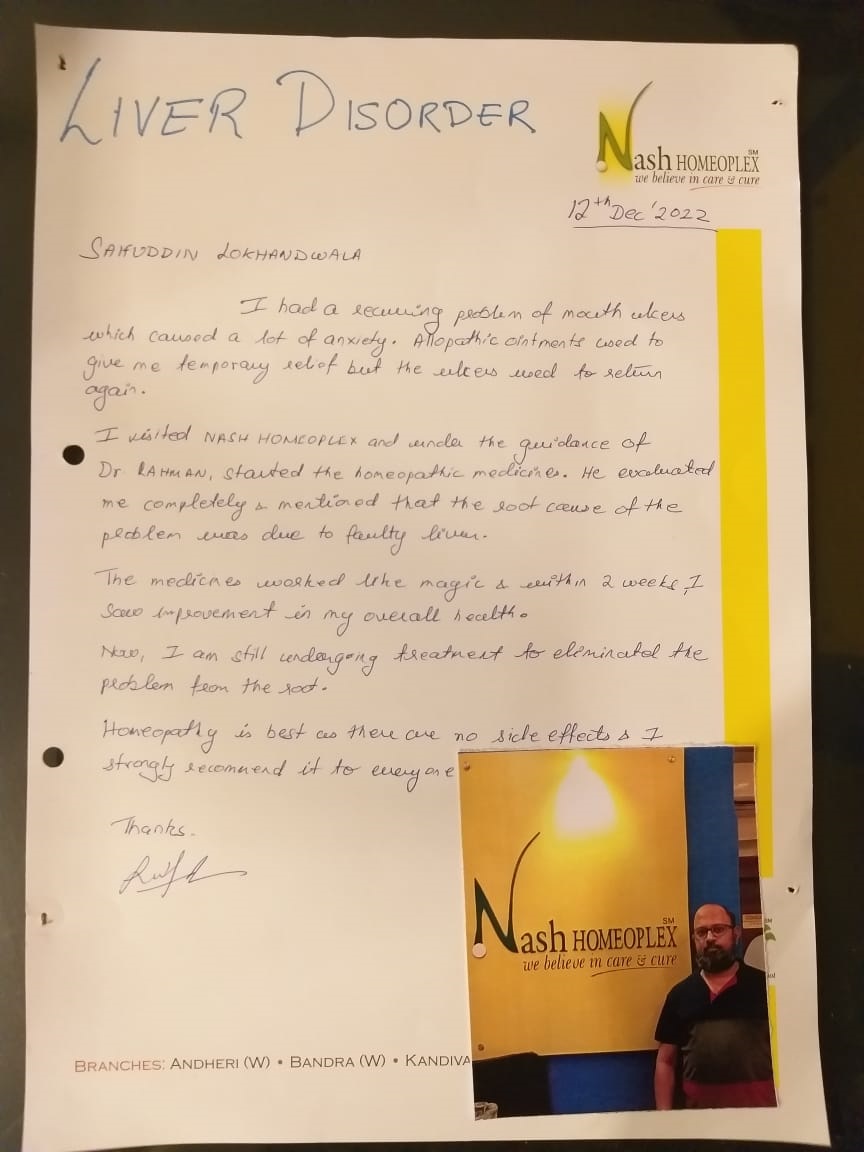 LIVER DISORDER
Nash HOMEOPLEX SM
we believe in care & cure
12th Dec '2022
SAIFUDDIN LOKHANDWALA
I had a recurring problem of mouth ulcers
which caused a lot of anxiety. Allopathic ointments used to
give me temporary relief but the ulcers used to return
again.
I visited NASH HOMEOPLEX and under the guidance of
Dr RAHMAN, started the homeopathic medicines. He evaluated
me completely & mentioned that the root cause of the
problem was due to faulty liver.
The medicines worked like magic & within 2 weeks, I
saw improvement in my overall health.
Now, I am still undergoing treatment to eliminated the
problem from the root.
Homeopathy is best as there are no side effects & I
strongly recommend it to everyone
Thanks.
Nash HOMEOPLEX SM
we believe in care & cure
BRANCHES: ANDHERI (W) • BANDRA (W) • KANDIVA